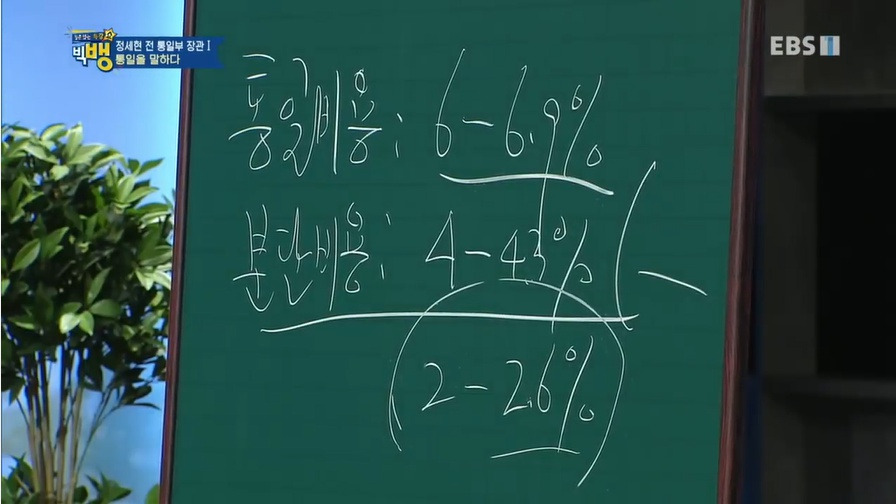 빅뱅
정세현 전 통일부 장관 I
통일을 말하다
EBS 1
통일비용: 6-6.9%
분단비용: 4-43%
2-2.6%